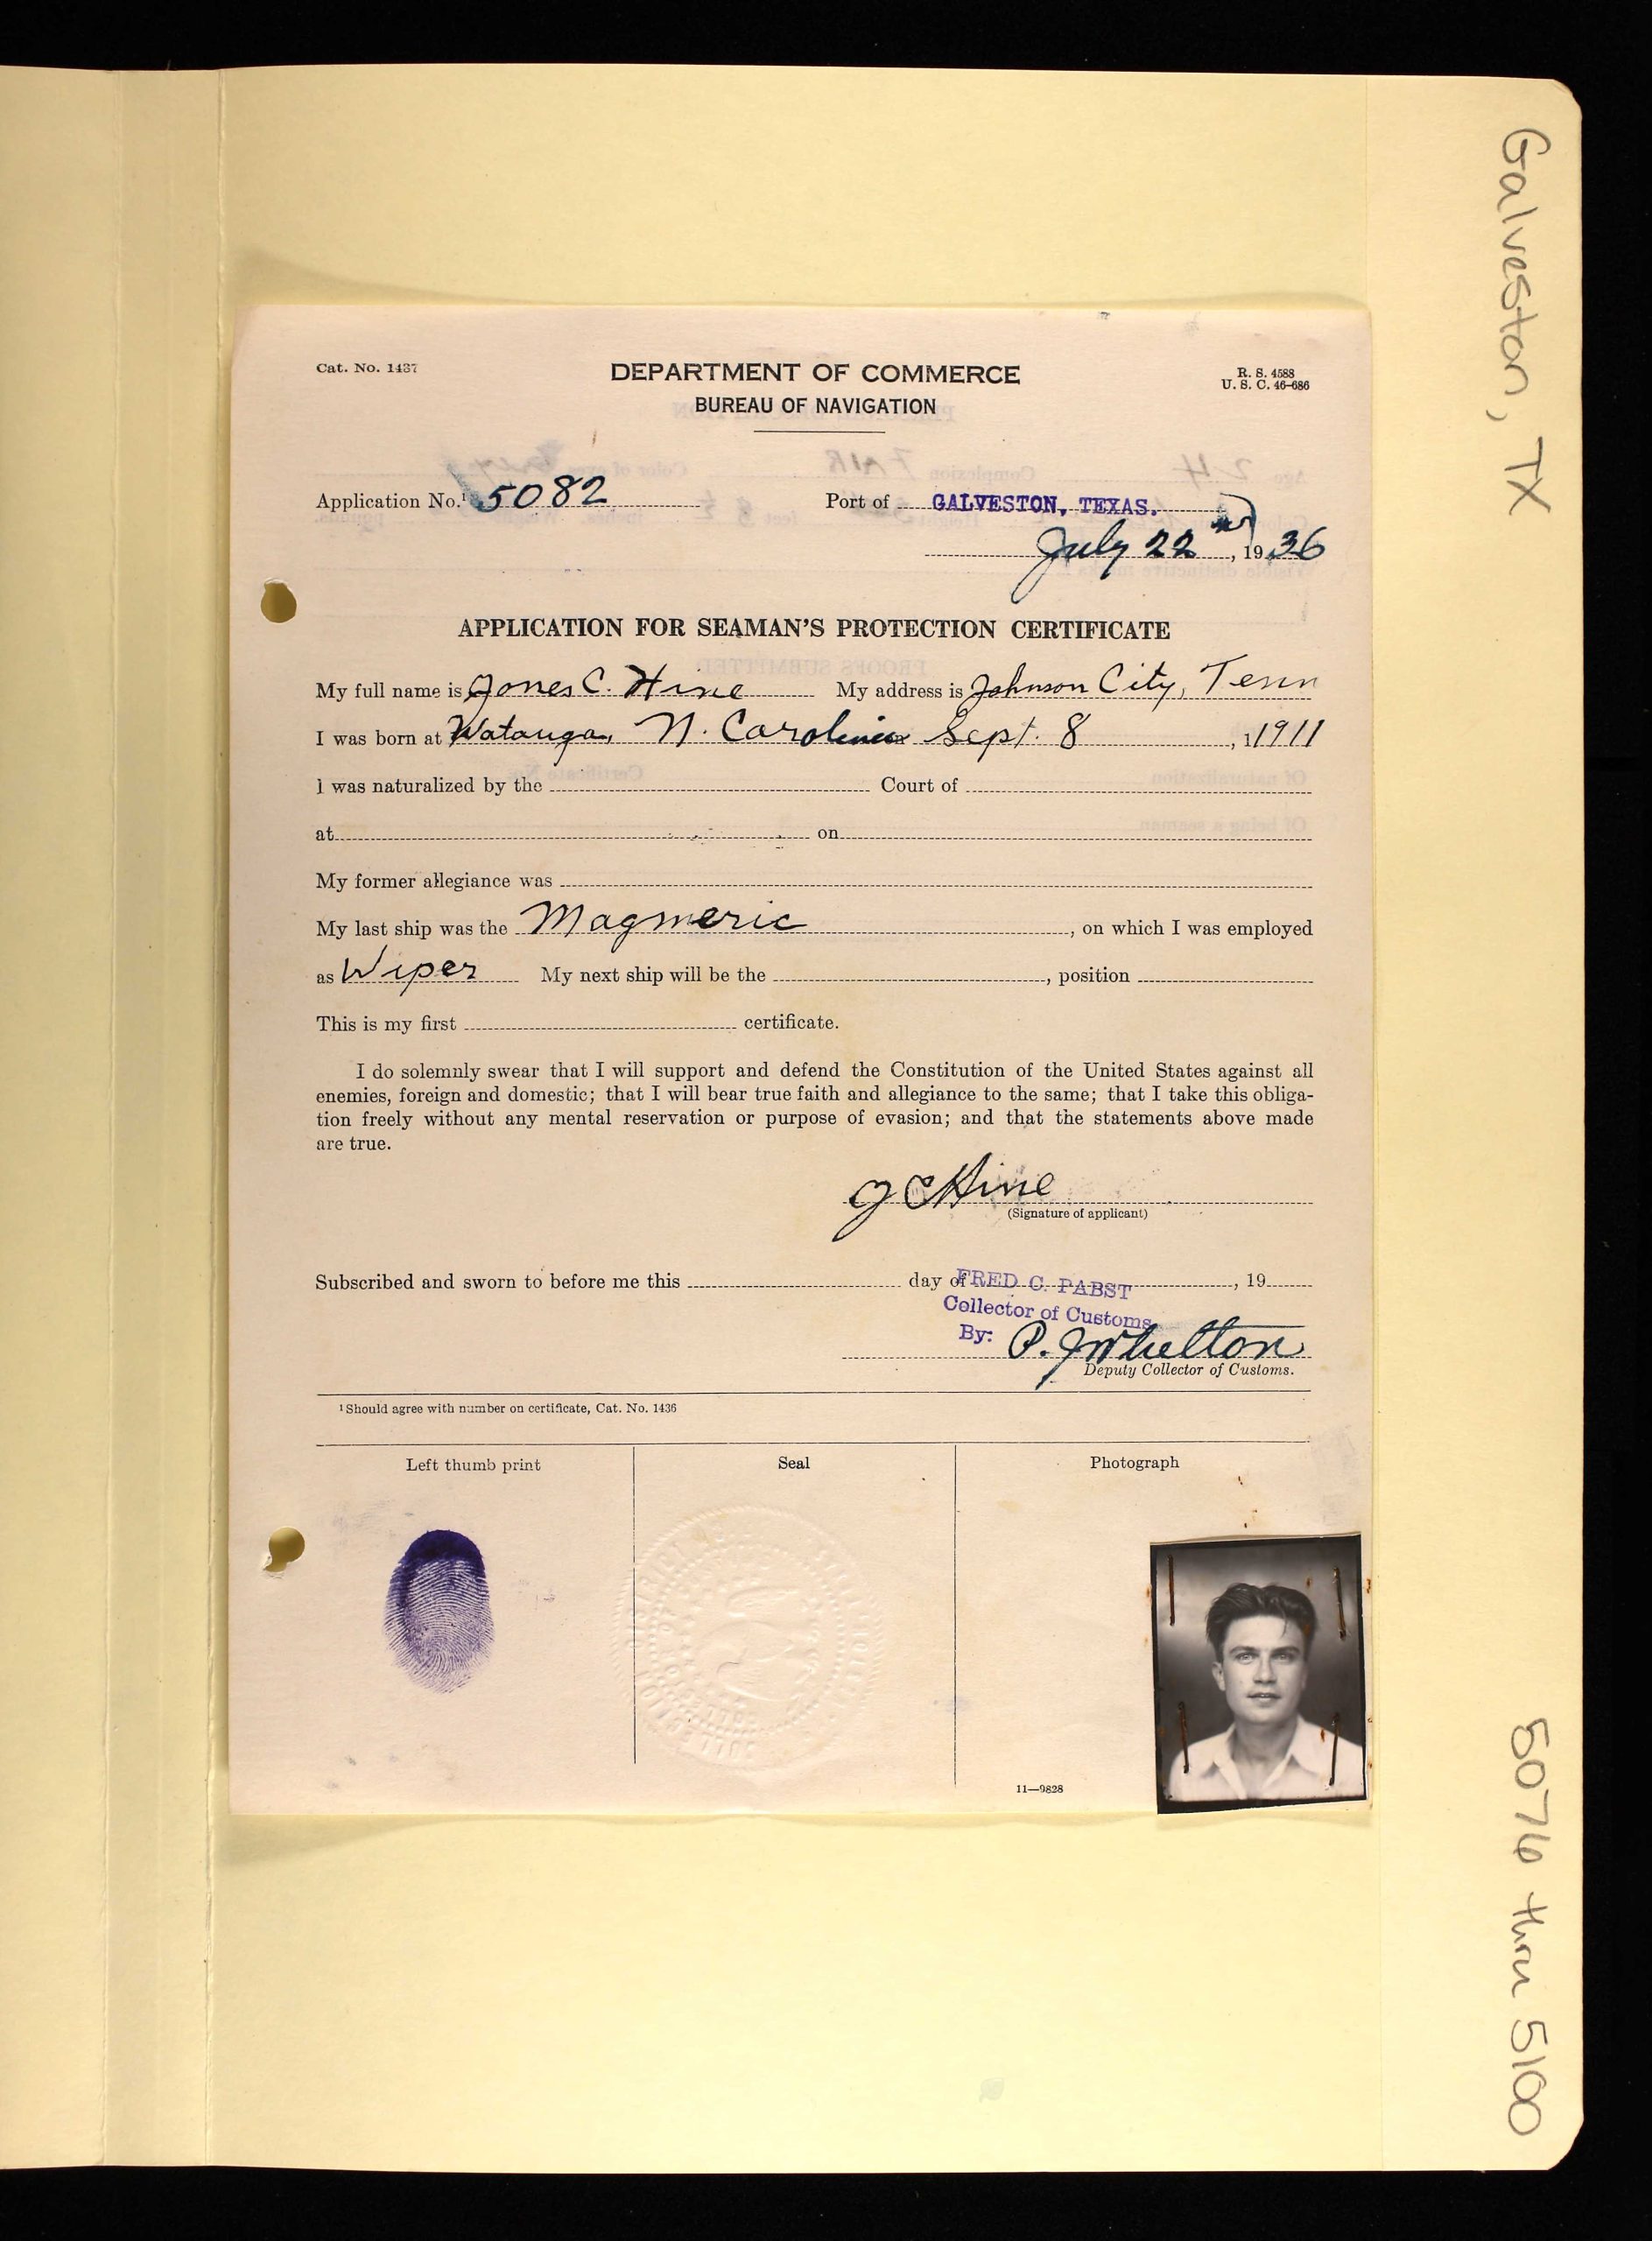 Galveston, TX
5076 thru 5100
Cat. No. 1437
DEPARTMENT OF COMMERCE
BUREAU OF NAVIGATION
R. S. 4588
U. S. C. 46-686
Application No.¹ 5082
Port of GALVESTON, TEXAS.
July 22nd, 1936
APPLICATION FOR SEAMAN'S PROTECTION CERTIFICATE
My full name is Jones C. Hine My address is Johnson City, Tenn
I was born at Watauga, N. Carolina Sept. 8, 1911
I was naturalized by the Court of
at on
My former allegiance was
My last ship was the Magmeric, on which I was employed
as Wiper My next ship will be the , position
This is my first certificate.
I do solemnly swear that I will support and defend the Constitution of the United States against all
enemies, foreign and domestic; that I will bear true faith and allegiance to the same; that I take this obliga-
tion freely without any mental reservation or purpose of evasion; and that the statements above made
are true.
J C Hine
(Signature of applicant)
Subscribed and sworn to before me this day of , 19
FRED C. PABST
Collector of Customs
By: P. J. Whelton
Deputy Collector of Customs.
¹ Should agree with number on certificate, Cat. No. 1436
Left thumb print
Seal
Photograph
11—9828